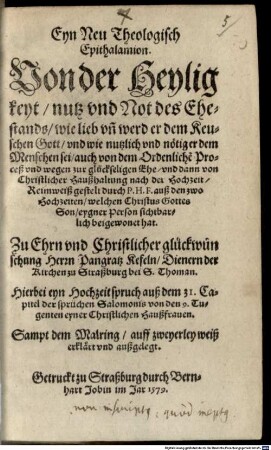 Eyn Neu Theologisch
Epithalamion.
Von der Heylig
keyt / nutz vnd Not des Ehe-
stands / wie lieb vñ werd er dem Keu-
schen Gott / vnd wie nutzlich vnd nötig er dem
Menschen sei / auch von dem Ordenliche Pro-
ceß vnd wegen zur glückseligen Ehe / vnd dann von
Christlicher Haußhaltung nach der Hochzeit /
Reimweiß gestelt durch P. H. F. auß den zwo
Hochzeiten / welchen Christus Gottes
Son / eygner person sichtbar-
lich beigewonet hat.
Zu Ehrn vnd Christlicher glückwün
schung Herrn Pangratz Kefeln / Dienern der
Kirchen zu Straßburg bei S. Thoman.
Hierbei eyn Hochzeit spruch auß dem 31. Ca-
pitel der sprüchen Salomonis von den 9. Tu-
genten eyner Christlichen Haußfrauen.
Sampt dem Malring / auff zweyerley weiß
erklärt vnd außgelegt.
Getruckt zu Straßburg durch Bern-
hart Jobin im Jar 1579.